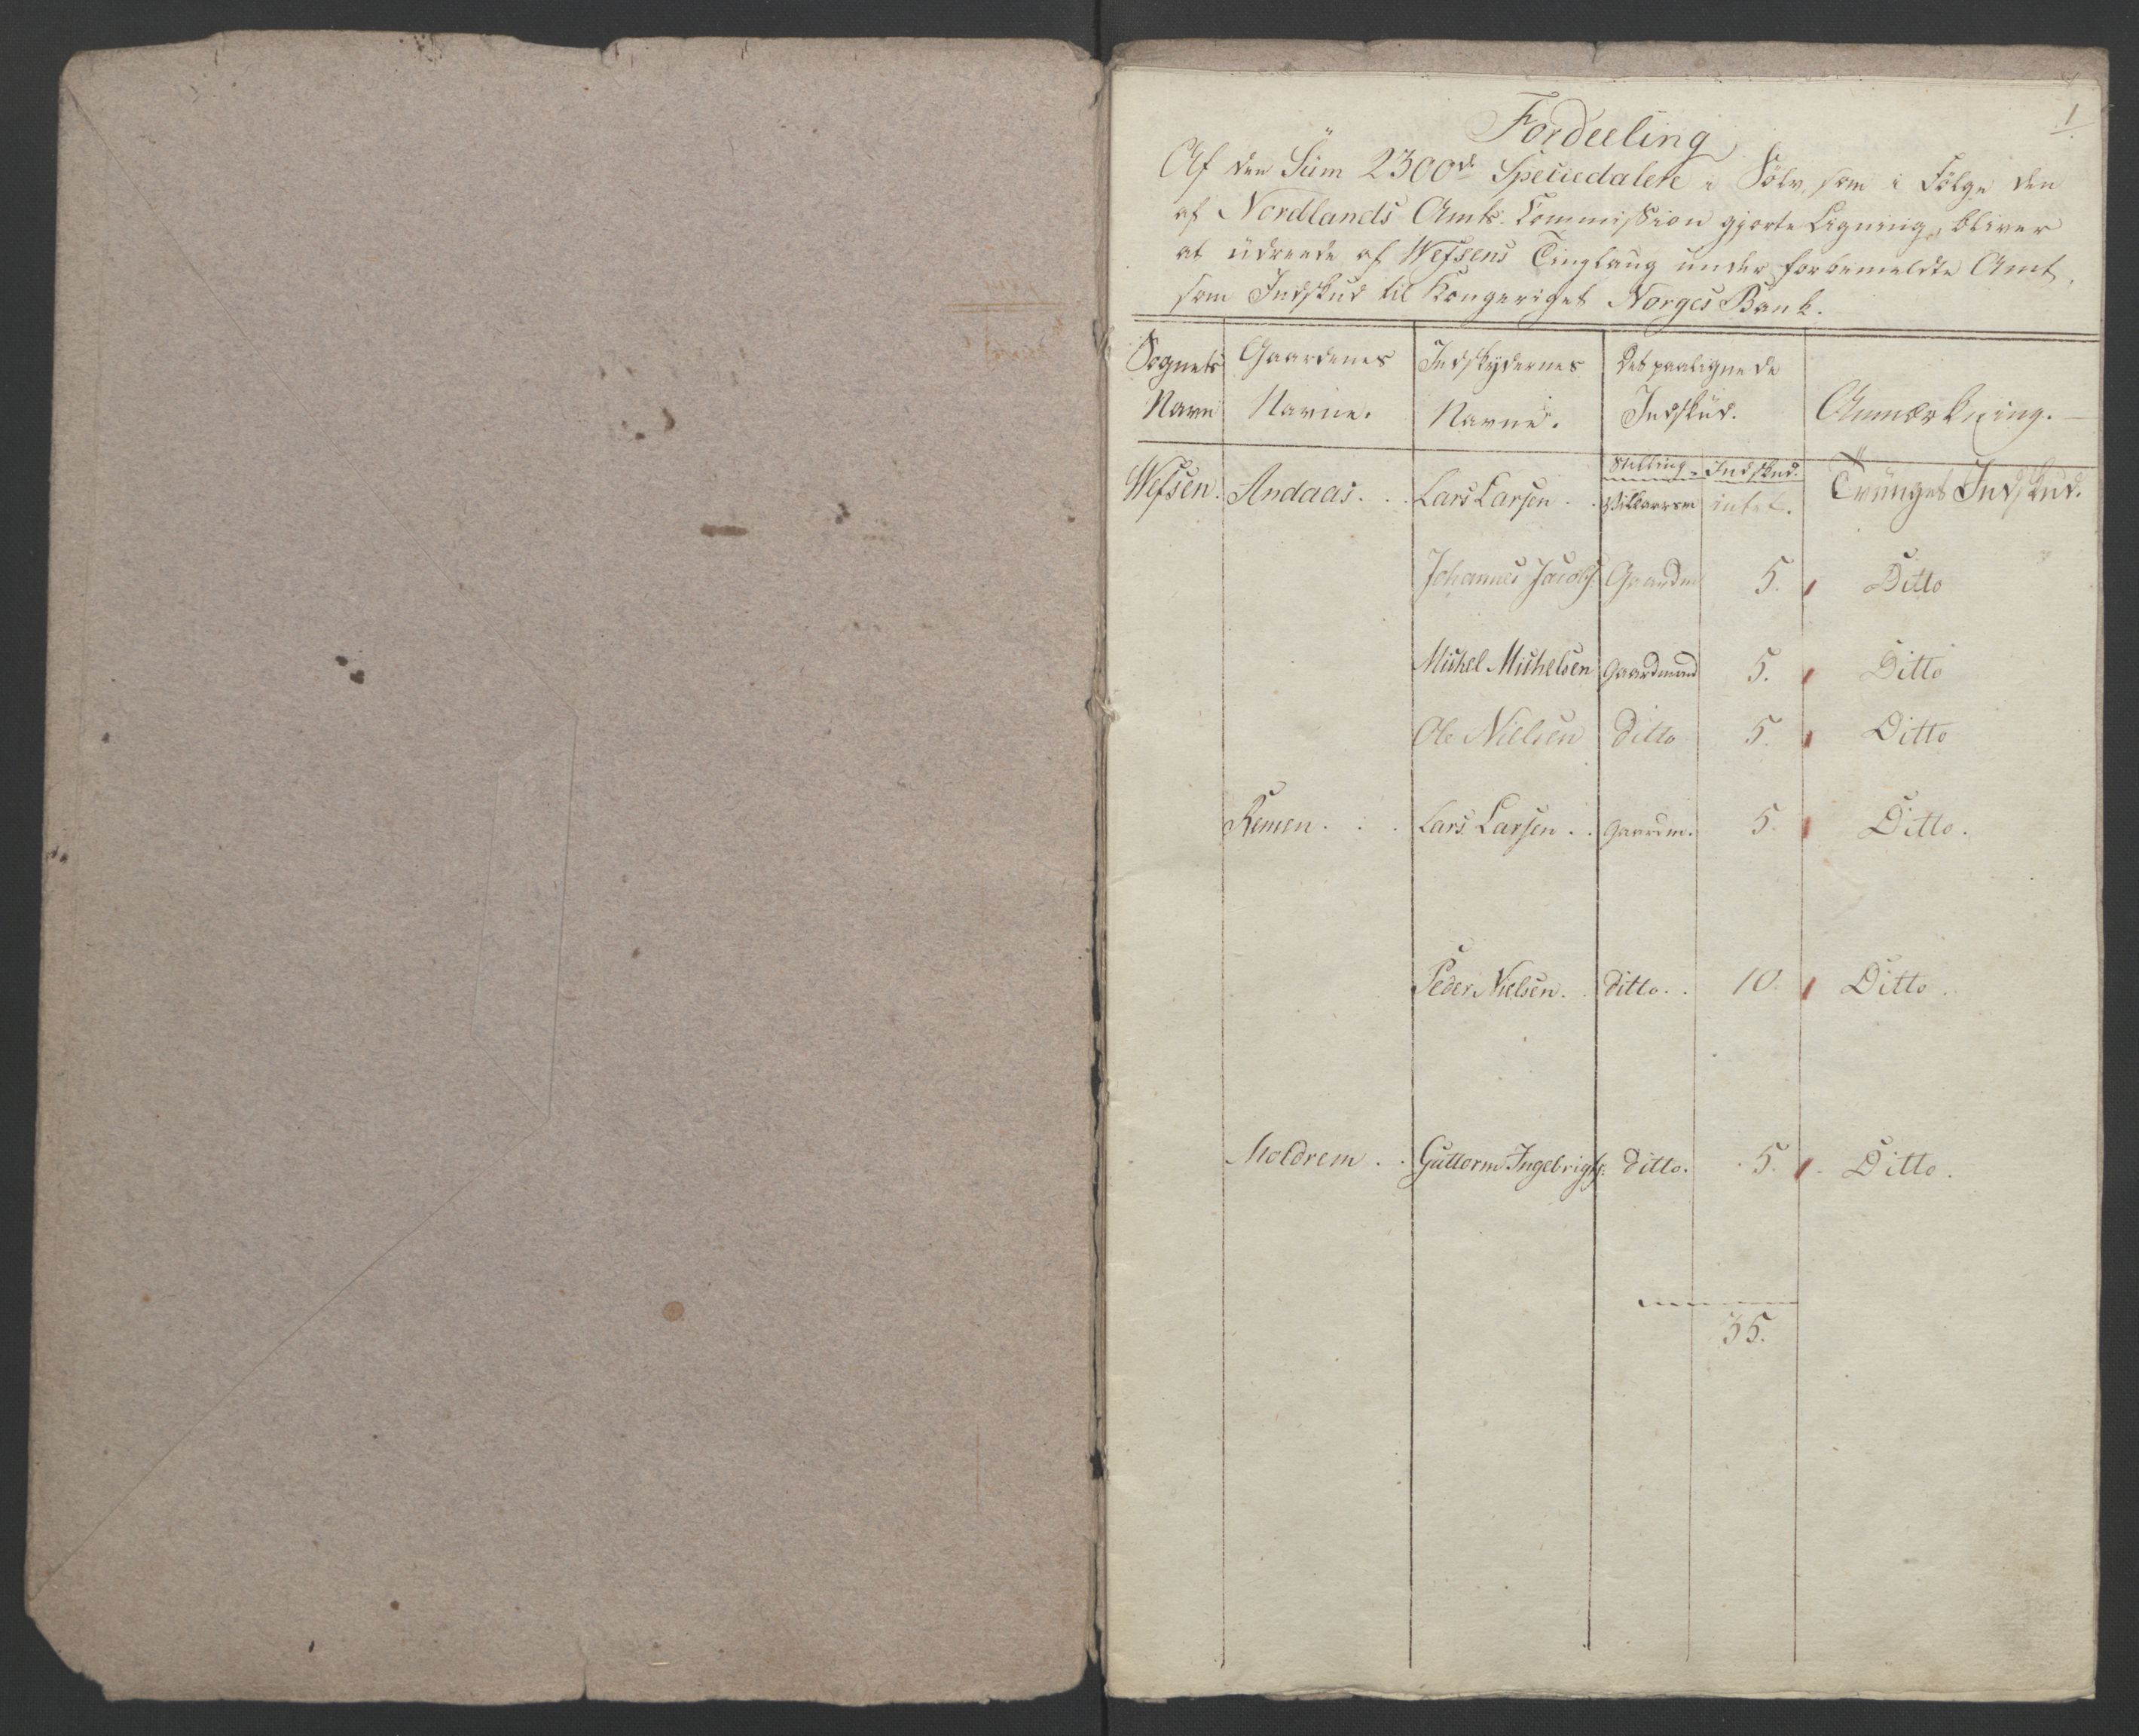 1
Fordeeling
Af den Süm 2300 Speciedalere i Sölv, som i Fölge den
af Nordlands Amts Commission gjorte Ligning, bliver
at üdreede af Wefsens Tinglaug under forbemeldte Amt,
som Indskud til Kongeriget Norges Bank.
Sognets Gaardenes Indskydernes Det paalignede
Navn Navne. Navne. Indskud. Anmærkning.
Stilling Indskud.
Wefsen. Andaas. . . Lars Larsen . . intet. Tvunget Indskud.
Johannes Jacobs. Gaardm 5. Ditto
Mickel Michelsen Gaardmand 5. Ditto
Ole Nielsen Ditto 5. Ditto
Remen. . . Lars Larsen . . Gaardm. 5. Ditto.
Peder Nielsen. . Ditto. . 10. Ditto.
Moldrem . . Guttorm Ingebrigts. Ditto. 5. Ditto.
35.